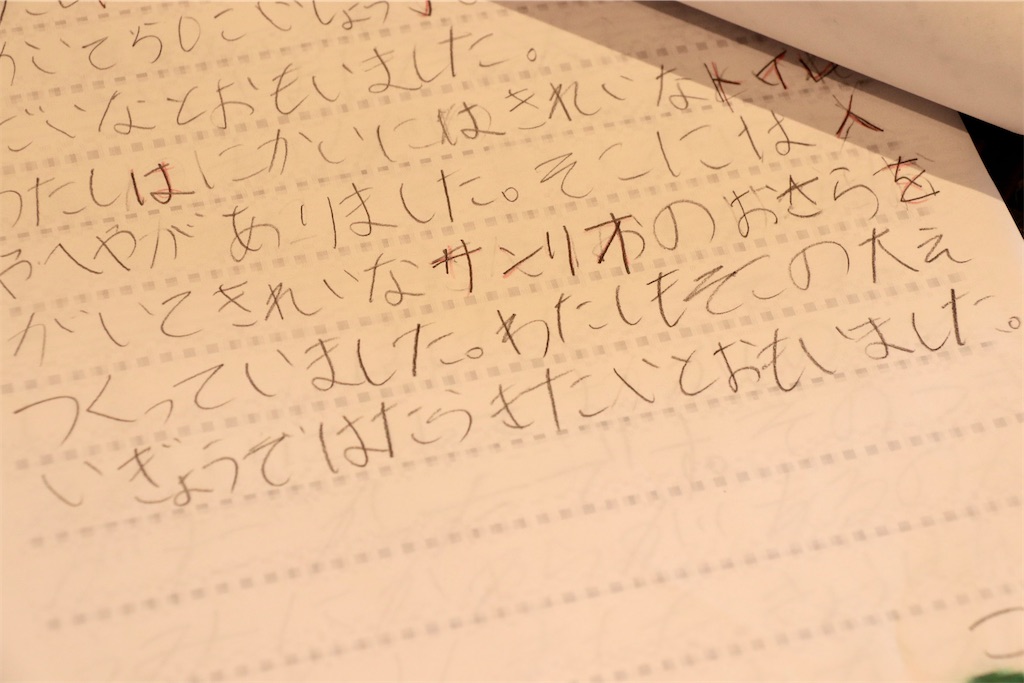 いなとおもいました。
わたしはにかいにはきれいなトイレ
へやがありました。そこには人
がいてきれいなサンリオのおさらを
つくっていました。わたしもそこの大え
いぎょうではたらきたいとおもいました。